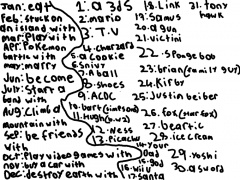 jan: eat
feb: stuck on
an island with
mar: Play with
Apr: Pokemon
battle with
may: marry
Jun: become
July: Start a
band with
Aug: climb a
mountain with
sep: be friends
with
oct: Play video games with
nov: buy a car with
Dec: destroy earth with
1: a 3ds
2: mario
3: T.V
4: charizard
5: a cookie
6: snivy
7: A ball
8: shoes
9: ACDC
10: bart (simpson)
11: Hugh (b.w2)
12: Ness
13: Picachu
14: your Dad
15: god
16: Wii U
17: santa
18: Link
19: Samus
20: a gun
21: victini
22: Spongebob
23: brian (family guy)
24: Kirby
25: Justin beiber
26: fox (star fox)
27: beartic
28: iron man
29: Yoshi
30: a sword
31: tony
hawk